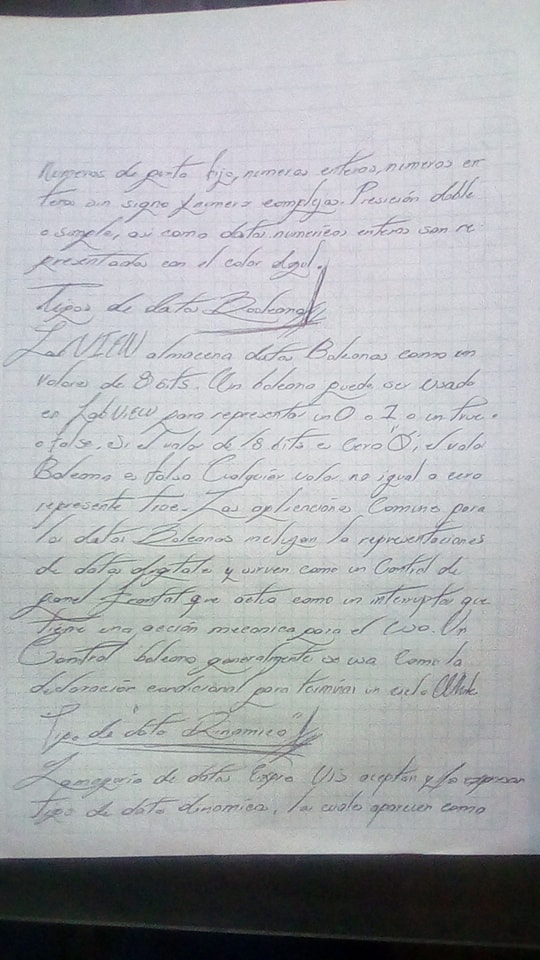 Numeros de punto fijo, numeros enteros, numeros en
teros sin signo y numero complejos. Presición doble
o simple, asi como datos numericos enteros son re
presentados con el color Azul.
Tipos de datos Booleano
LabVIEW almacena datos Boleanos como en
valores de 8 bits. Un boleano puede ser usado
en LabVIEW para representar un 0 o 1 o un true
o false. Si el valor de 8 bits es cero "0", el valor
Boleano es falso Cualquier valor no igual a cero
represente true. Las aplicaciones Comunes para
los datos Boleanos incluyan la representaciones
de datos digitales y sirven como un Control de
panel frontal que actua como un interruptor que
tiene una acción mecanica para el uso. Un
Control boleano generalmente se usa Como la
declaración condicional para terminar un ciclo While
Tipo de "dato Dinamico"
La mayoria de datos Expre VIs aceptan y la
tipo de dato dinamico, la cuale aparecen como